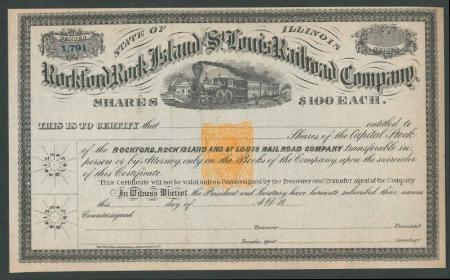 STATE OF ILLINOIS
NUMBER
1,791
SHARES
Rockford Rock Island & St Louis Railroad Company.
SHARES $100 EACH.
THIS IS TO CERTIFY that entitled to
Shares of the Capital Stock
of the ROCKFORD, ROCK ISLAND AND ST LOUIS RAILROAD COMPANY transferable in
person or by Attorney, only on the Books of the Company upon the surrender
of this Certificate.
This Certificate will not be valid unless Countersigned by the Treasurer and Transfer Agent of the Company
In Witness Whereof, the President and Secretary have hereunto subscribed their names
this day of A.D. 18
Countersigned
Treasurer President
Transfer Agent Secretary